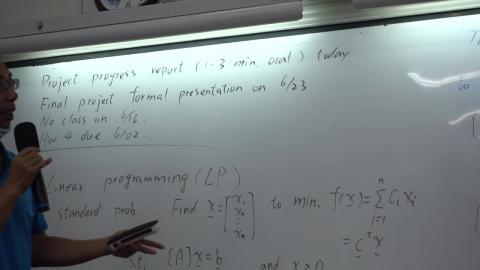 Project progress report (1-3 min. oral) today
Final project formal presentation on 6/23
No class on 6/16.
HW 4 due 6/02.
Linear programming (LP)
standard prob.: Find x = [x₁ x₂ ⋮ xₙ] to min. f(x) = Σᵢ₌₁ⁿ Cᵢxᵢ
= cᵀx
[A]x = b and x ≥ 0